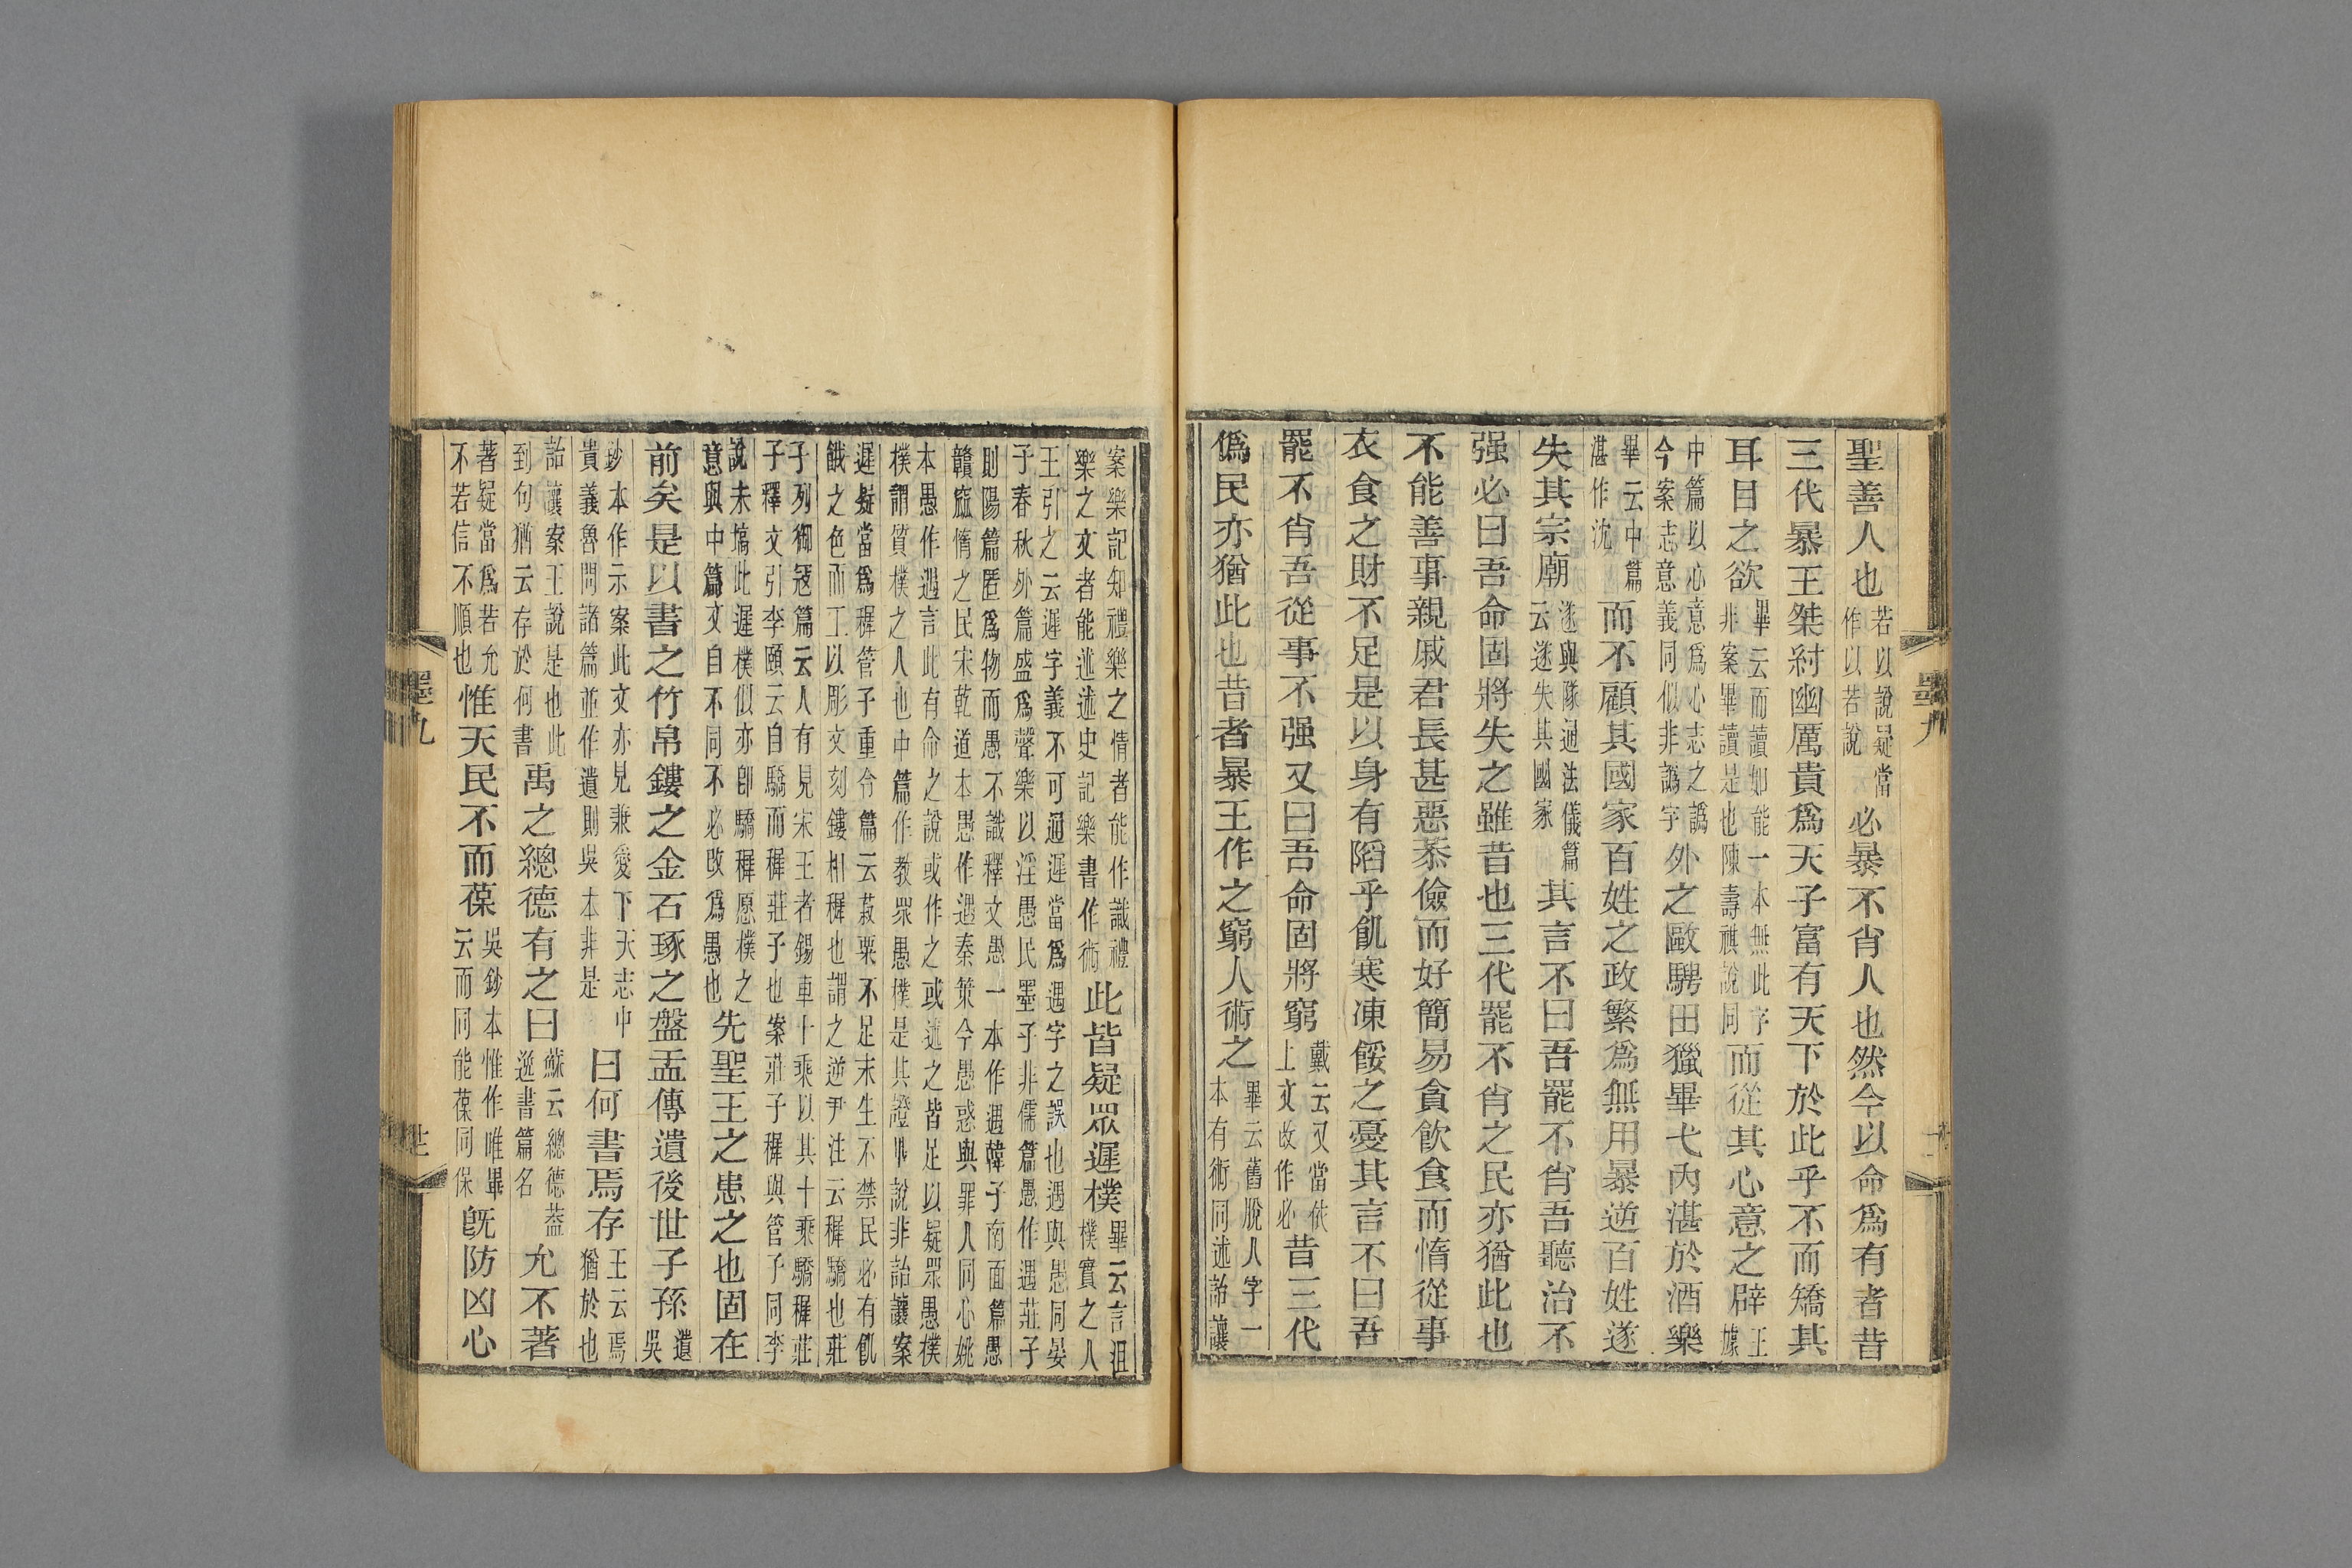 聖善人也若以說疑當作以若說必暴不肖人也然今以命爲有者昔
三代暴王桀紂幽厲貴爲天子富有天下於此乎不而矯其
耳目之欲畢云而讀如能一本無此字非案畢讀是也陳壽祺說同而從其心意之辟王據
中篇以心意爲心志之譌今案志意義同似非譌字外之敺騁田獵畢弋內湛於酒樂
畢云中篇湛作沈而不顧其國家百姓之政繁爲無用暴逆百姓遂
失其宗廟遂與隊通法儀篇云遂失其國家其言不曰吾罷不肖吾聽治不
强必曰吾命固將失之雖昔也三代罷不肖之民亦猶此也
不能善事親戚君長甚惡恭儉而好簡易貪飮食而惰從事
衣食之財不足是以身有陷乎飢寒凍餒之憂其言不曰吾
罷不肖吾從事不强又曰吾命固將窮戴云又當依上文改作必昔三代
僞民亦猶此也昔者暴王作之窮人術之畢云舊脫人字一本有術同述詒讓
案樂記知禮樂之情者能作識禮樂之文者能述述史記樂書作術此皆疑眾遲樸畢云言沮樸實之人
王引之云遲字義不可通遲當爲遇字之誤也遇與愚同晏
子春秋外篇盛爲聲樂以淫愚民墨子非儒篇愚作遇莊子
則陽篇匿爲物而愚不識釋文愚一本作遇韓子南面篇愚
贛窳惰之民宋乾道本愚作遇秦策今愚惑與罪人同心姚
本愚作遇言此有命之說或作之或述之皆足以疑眾愚樸
樸謂質樸之人也中篇作教眾愚樸是其證畢說非詒讓案
遲疑當爲穉管子重令篇云菽粟不足末生不禁民必有飢
餓之色而工以彫文刻鏤相穉也謂之逆尹注云穉驕也莊
子列御寇篇云人有見宋王者錫車十乘以其十乘驕穉莊
子釋文引李頤云自驕而穉莊子也案莊子穉與管子同李
說未塙此遲樸似亦卽驕穉愿樸之意與中篇文自不同不必改爲愚也先聖王之患之也固在
前矣是以書之竹帛鏤之金石琢之盤盂傳遺後世子孫遺吳
鈔本作示案此文亦見兼愛下天志中貴義魯問諸篇並作遺則吳本非是曰何書焉存王云焉猶於也
詒讓案王說是也此到句猶云存於何書禹之總德有之曰蘇云總德葢逸書篇名允不著
著疑當爲若允不若信不順也惟天民不而葆吳鈔本惟作唯畢云而同能葆同保旣防凶心
墨九